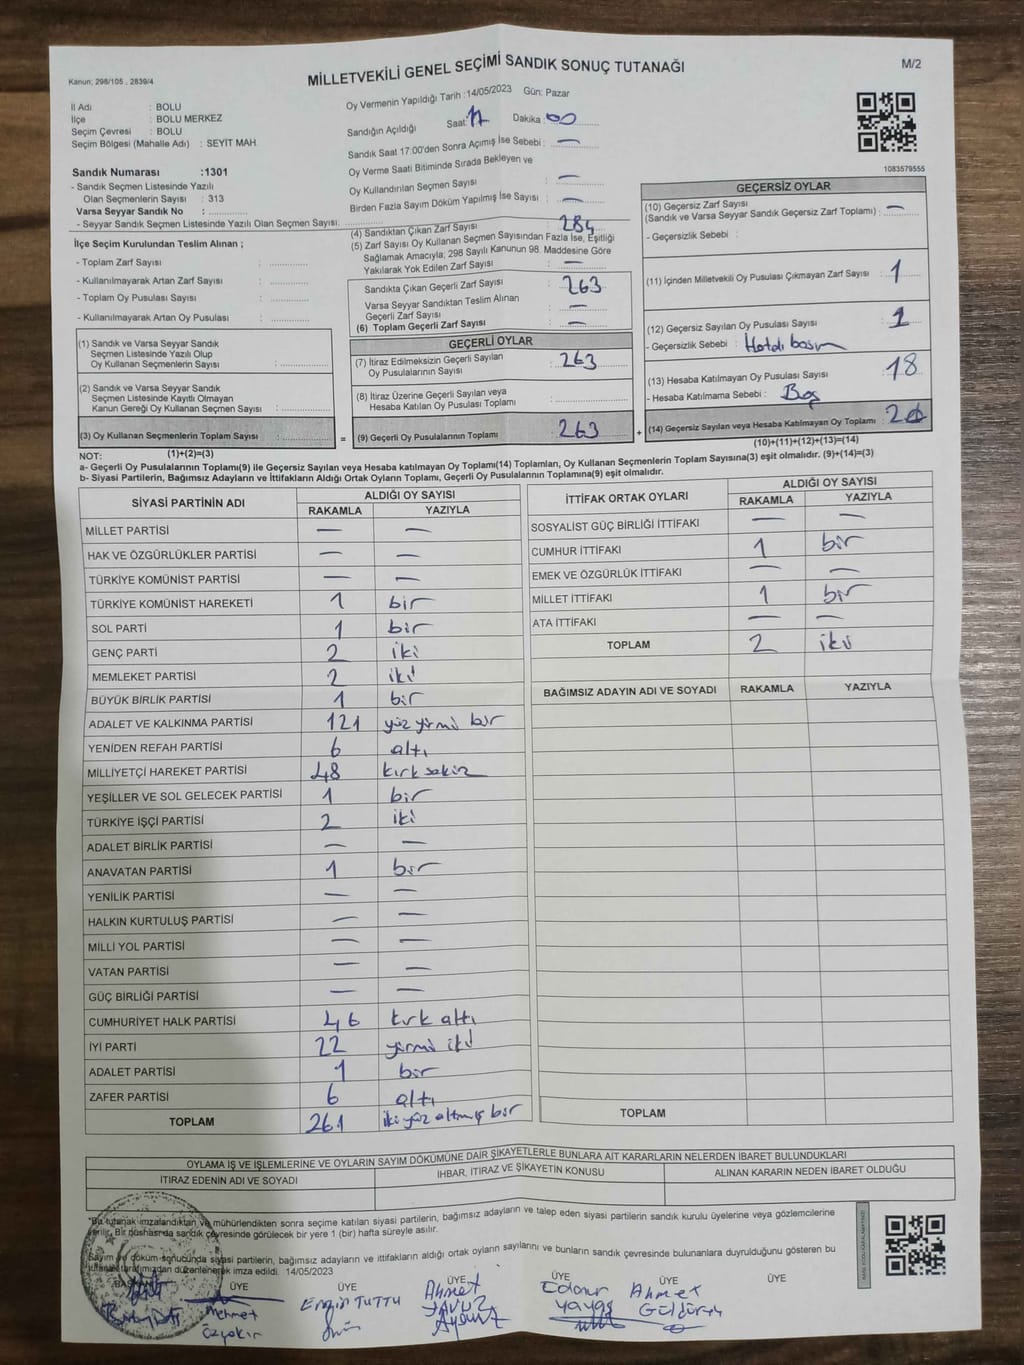 Kanun; 298/105 , 2839/4
MİLLETVEKİLİ GENEL SEÇİMİ SANDIK SONUÇ TUTANAĞI
M/2
İl Adı : BOLU
İlçe : BOLU MERKEZ
Seçim Çevresi : BOLU
Seçim Bölgesi (Mahalle Adı) : SEYİT MAH
Sandık Numarası :1301
- Sandık Seçmen Listesinde Yazılı
Olan Seçmenlerin Sayısı : 313
Varsa Seyyar Sandık No :
- Seyyar Sandık Seçmen Listesinde Yazılı Olan Seçmen Sayısı:
İlçe Seçim Kurulundan Teslim Alınan ;
- Toplam Zarf Sayısı :
- Kullanılmayarak Artan Zarf Sayısı :
- Toplam Oy Pusulası Sayısı :
- Kullanılmayarak Artan Oy Pusulası :
(1) Sandık ve Varsa Seyyar Sandık
Seçmen Listesinde Yazılı Olup
Oy Kullanan Seçmenlerin Sayısı :
(2) Sandık ve Varsa Seyyar Sandık
Seçmen Listesinde Kayıtlı Olmayan
Kanun Gereği Oy Kullanan Seçmen Sayısı :
(3) Oy Kullanan Seçmenlerin Toplam Sayısı :
(1)+(2)=(3)
Oy Vermenin Yapıldığı Tarih :14/05/2023 Gün: Pazar
Sandığın Açıldığı Saat: 17 Dakika : 00
Sandık Saat 17:00'den Sonra Açımış İse Sebebi : —
Oy Verme Saati Bitiminde Sırada Bekleyen ve
Oy Kullandırılan Seçmen Sayısı : —
Birden Fazla Sayım Döküm Yapılmış İse Sayısı : —
(4) Sandıktan Çıkan Zarf Sayısı : 284
(5) Zarf Sayısı Oy Kullanan Seçmen Sayısından Fazla İse, Eşitliği
Sağlamak Amacıyla; 298 Sayılı Kanunun 98. Maddesine Göre
Yakılarak Yok Edilen Zarf Sayısı : —
Sandıkta Çıkan Geçerli Zarf Sayısı : 263
Varsa Seyyar Sandıktan Teslim Alınan
Geçerli Zarf Sayısı : —
(6) Toplam Geçerli Zarf Sayısı : —
GEÇERLİ OYLAR
(7) İtiraz Edilmeksizin Geçerli Sayılan
Oy Pusulalarının Sayısı : 263
(8) İtiraz Üzerine Geçerli Sayılan veya
Hesaba Katılan Oy Pusulası Toplamı :
= (9) Geçerli Oy Pusulalarının Toplamı : 263 +
1083579555
GEÇERSİZ OYLAR
(10) Geçersiz Zarf Sayısı
(Sandık ve Varsa Seyyar Sandık Geçersiz Zarf Toplamı) : —
- Geçersizlik Sebebi :
(11) İçinden Milletvekili Oy Pusulası Çıkmayan Zarf Sayısı : 1
(12) Geçersiz Sayılan Oy Pusulası Sayısı : 1
- Geçersizlik Sebebi : Hatalı basım
(13) Hesaba Katılmayan Oy Pusulası Sayısı : 18
- Hesaba Katılmama Sebebi : Boş
(14) Geçersiz Sayılan veya Hesaba Katılmayan Oy Toplamı :
(10)+(11)+(12)+(13)=(14)
NOT:
a- Geçerli Oy Pusulalarının Toplamı(9) ile Geçersiz Sayılan veya Hesaba katılmayan Oy Toplamı(14) Toplamları, Oy Kullanan Seçmenlerin Toplam Sayısına(3) eşit olmalıdır. (9)+(14)=(3)
b- Siyasi Partilerin, Bağımsız Adayların ve İttifakların Aldığı Ortak Oyların Toplamı, Geçerli Oy Pusulalarının Toplamına(9) eşit olmalıdır.
SİYASİ PARTİNİN ADI ALDIĞI OY SAYISI
RAKAMLA YAZIYLA
MİLLET PARTİSİ — —
HAK VE ÖZGÜRLÜKLER PARTİSİ — —
TÜRKİYE KOMÜNİST PARTİSİ — —
TÜRKİYE KOMÜNİST HAREKETİ 1 bir
SOL PARTİ 1 bir
GENÇ PARTİ 2 iki
MEMLEKET PARTİSİ 2 iki
BÜYÜK BİRLİK PARTİSİ 1 bir
ADALET VE KALKINMA PARTİSİ 121 yüz yirmi bir
YENİDEN REFAH PARTİSİ 6 altı
MİLLİYETÇİ HAREKET PARTİSİ 48 kırk sekiz
YEŞİLLER VE SOL GELECEK PARTİSİ 1 bir
TÜRKİYE İŞÇİ PARTİSİ 2 iki
ADALET BİRLİK PARTİSİ — —
ANAVATAN PARTİSİ 1 bir
YENİLİK PARTİSİ — —
HALKIN KURTULUŞ PARTİSİ — —
MİLLİ YOL PARTİSİ — —
VATAN PARTİSİ — —
GÜÇ BİRLİĞİ PARTİSİ — —
CUMHURİYET HALK PARTİSİ 46 kırk altı
İYİ PARTİ 22 yirmi iki
ADALET PARTİSİ 1 bir
ZAFER PARTİSİ 6 altı
TOPLAM 261 iki yüz altmış bir
İTTİFAK ORTAK OYLARI ALDIĞI OY SAYISI
RAKAMLA YAZIYLA
SOSYALİST GÜÇ BİRLİĞİ İTTİFAKI — —
CUMHUR İTTİFAKI 1 bir
EMEK VE ÖZGÜRLÜK İTTİFAKI — —
MİLLET İTTİFAKI 1 bir
ATA İTTİFAKI — —
TOPLAM 2 iki
BAĞIMSIZ ADAYIN ADI VE SOYADI RAKAMLA YAZIYLA
TOPLAM
OYLAMA İŞ VE İŞLEMLERİNE VE OYLARIN SAYIM DÖKÜMÜNE DAİR ŞİKAYETLERLE BUNLARA AİT KARARLARIN NELERDEN İBARET BULUNDUKLARI
İTİRAZ EDENİN ADI VE SOYADI İHBAR, İTİRAZ VE ŞİKAYETİN KONUSU ALINAN KARARIN NEDEN İBARET OLDUĞU
"Bu tutanak imzalandıktan ve mühürlendikten sonra seçime katılan siyasi partilerin, bağımsız adayların ve talep eden siyasi partilerin sandık kurulu üyelerine veya gözlemcilerine
verilir. Bir nüshası da sandık çevresinde görülecek bir yere 1 (bir) hafta süreyle asılır.
Sayım ve döküm sonucunda siyasi partilerin, bağımsız adayların ve ittifakların aldığı ortak oyların sayılarını ve bunların sandık çevresinde bulunanlara duyrulduğunu gösteren bu
tutanak tarafımızdan düzenlenerek imza edildi. 14/05/2023
BAŞKAN ÜYE ÜYE ÜYE ÜYE ÜYE ÜYE
Mehmet Özçakır
Engin TUTTU
Ahmet YAVUZ
Edanur Yayaş
Ahmet Güldüren